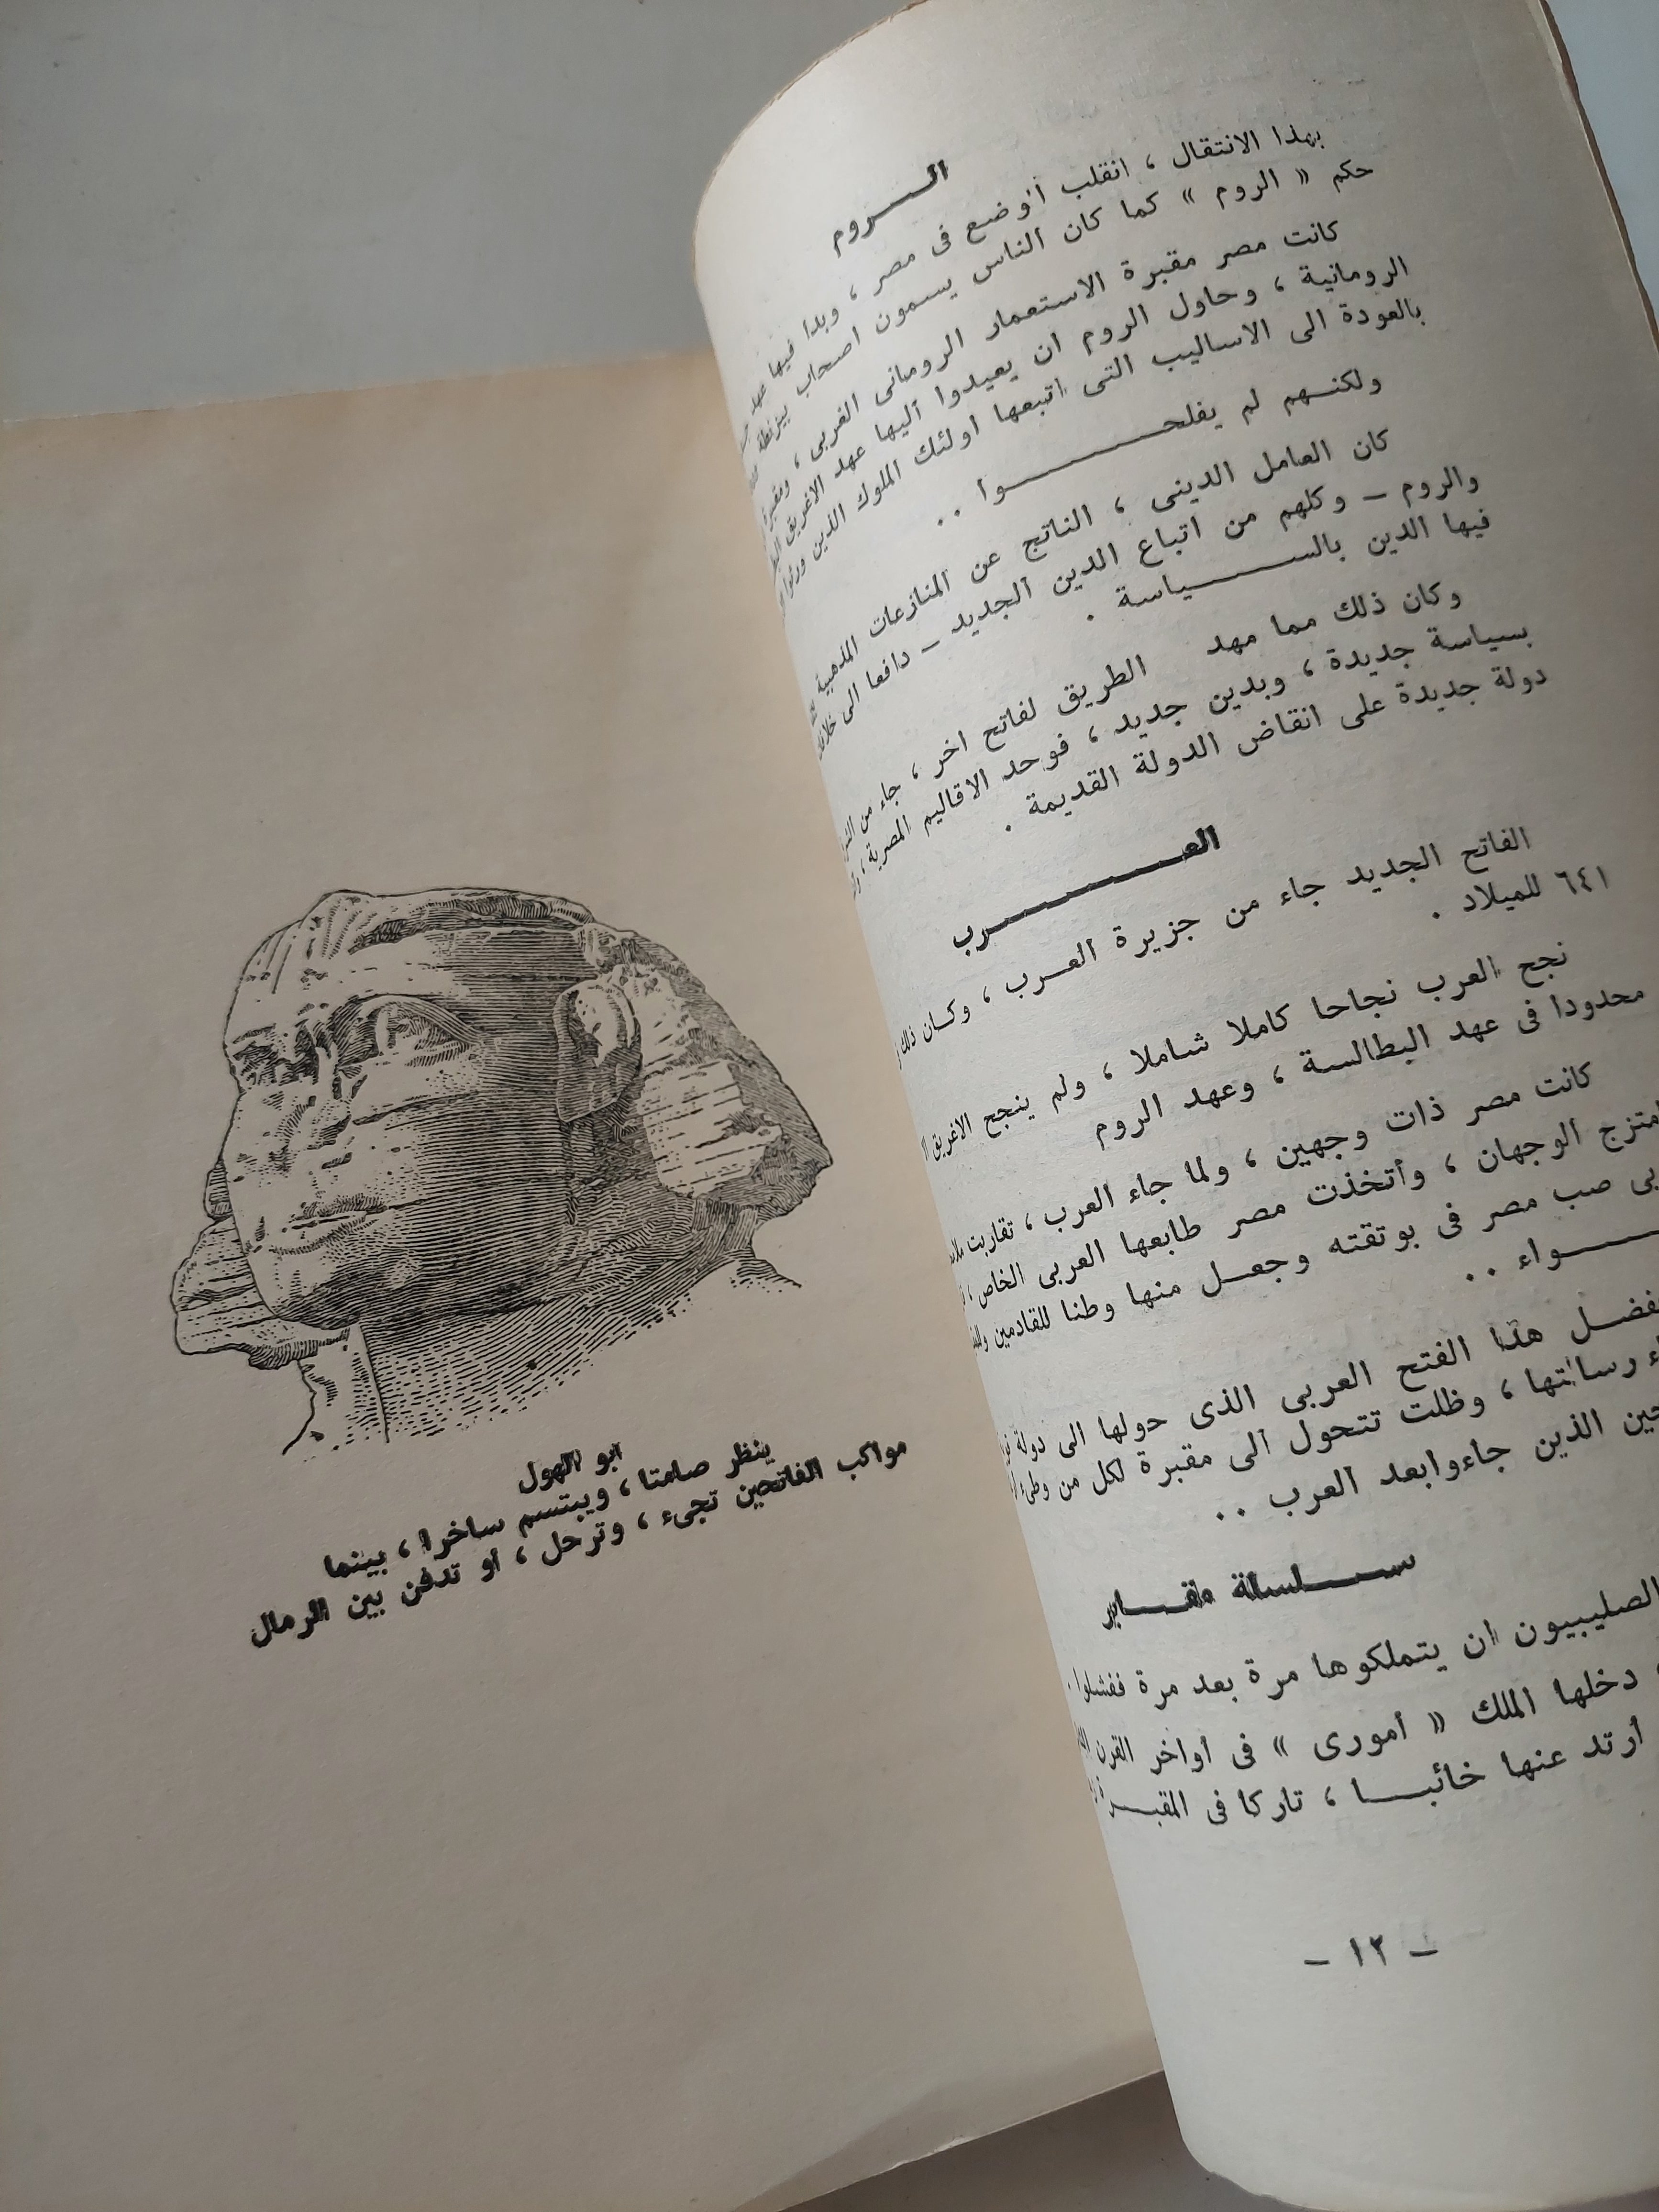 الـــروم
بهذا الانتقال ، انقلب الوضع فى مصر ، وبدا فيها عهد
حكم « الروم » كما كان الناس يسمون اصحاب بيزنطة
كانت مصر مقبرة الاستعمار الرومانى الغربى ، ومقبرة
الرومانية ، وحاول الروم ان يعيدوا اليها عهد الاغريق
بالعودة الى الاساليب التى اتبعها اولئك الملوك الذين ورثوا
ولكنـهم لم يفلحـــــــوا ..
كان العامل الدينى ، الناتج عن المنازعات المذهبية
والروم – وكلهم من اتباع الدين الجديد – دافعا الى
فيها الدين بالســـــياسة .
وكان ذلك مما مهد الطريق لفاتح اخر ، جاء من
بسياسة جديدة ، وبدين جديد ، فوحد الاقاليم المصرية ،
دولة جديدة على انقاض الدولة القديمة .
العـــــــــرب
الفاتح الجديد جاء من جزيرة العـرب ، وكـان ذلك
٦٤١ للميلاد .
نجح العرب نجاحا كاملا شـاملا ، ولم ينجح الاغريق
محدودا فى عهد البطالسة ، وعهد الروم
كانت مصر ذات وجهين ، ولما جاء العرب ، تقاربت
امتزج الوجهان ، وأتخذت مصر طابعها العربى الخاص ،
صب مصر فى بوتقته وجعـل منها وطنا للقادمين
ـــواء ..
هذا الفتح العربى الذى حولها الى دولة
رسالتها ، وظلت تتحول الى مقبرة لكل من وطىء
الذين جاءوابعد العرب ..
ســـلسلة مقـــابر
الصليبيون ان يتملكوها مرة بعد مرة ففشلوا .
دخلها الملك « أمورى » فى أواخر القرن
أرتد عنها خائبـــا ، تاركا فى المقبـــرة
– ١٢ –
ابو الهول
ينظر صامتا ، ويبتسم ساخرا ، بينما
مواكب الفاتحين تجىء ، وترحل ، أو تدفن بين الرمال